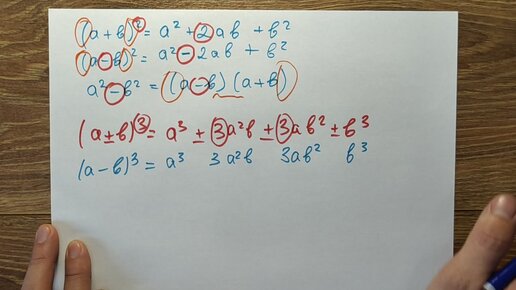 (a + b)² = a² + 2ab + b²
(a - b)² = a² - 2ab + b²
a² - b² = ((a - b)(a + b))
(a ± b)³ = a³ ± 3a²b ± 3ab² ± b³
(a - b)³ = a³ 3a²b 3ab² b³